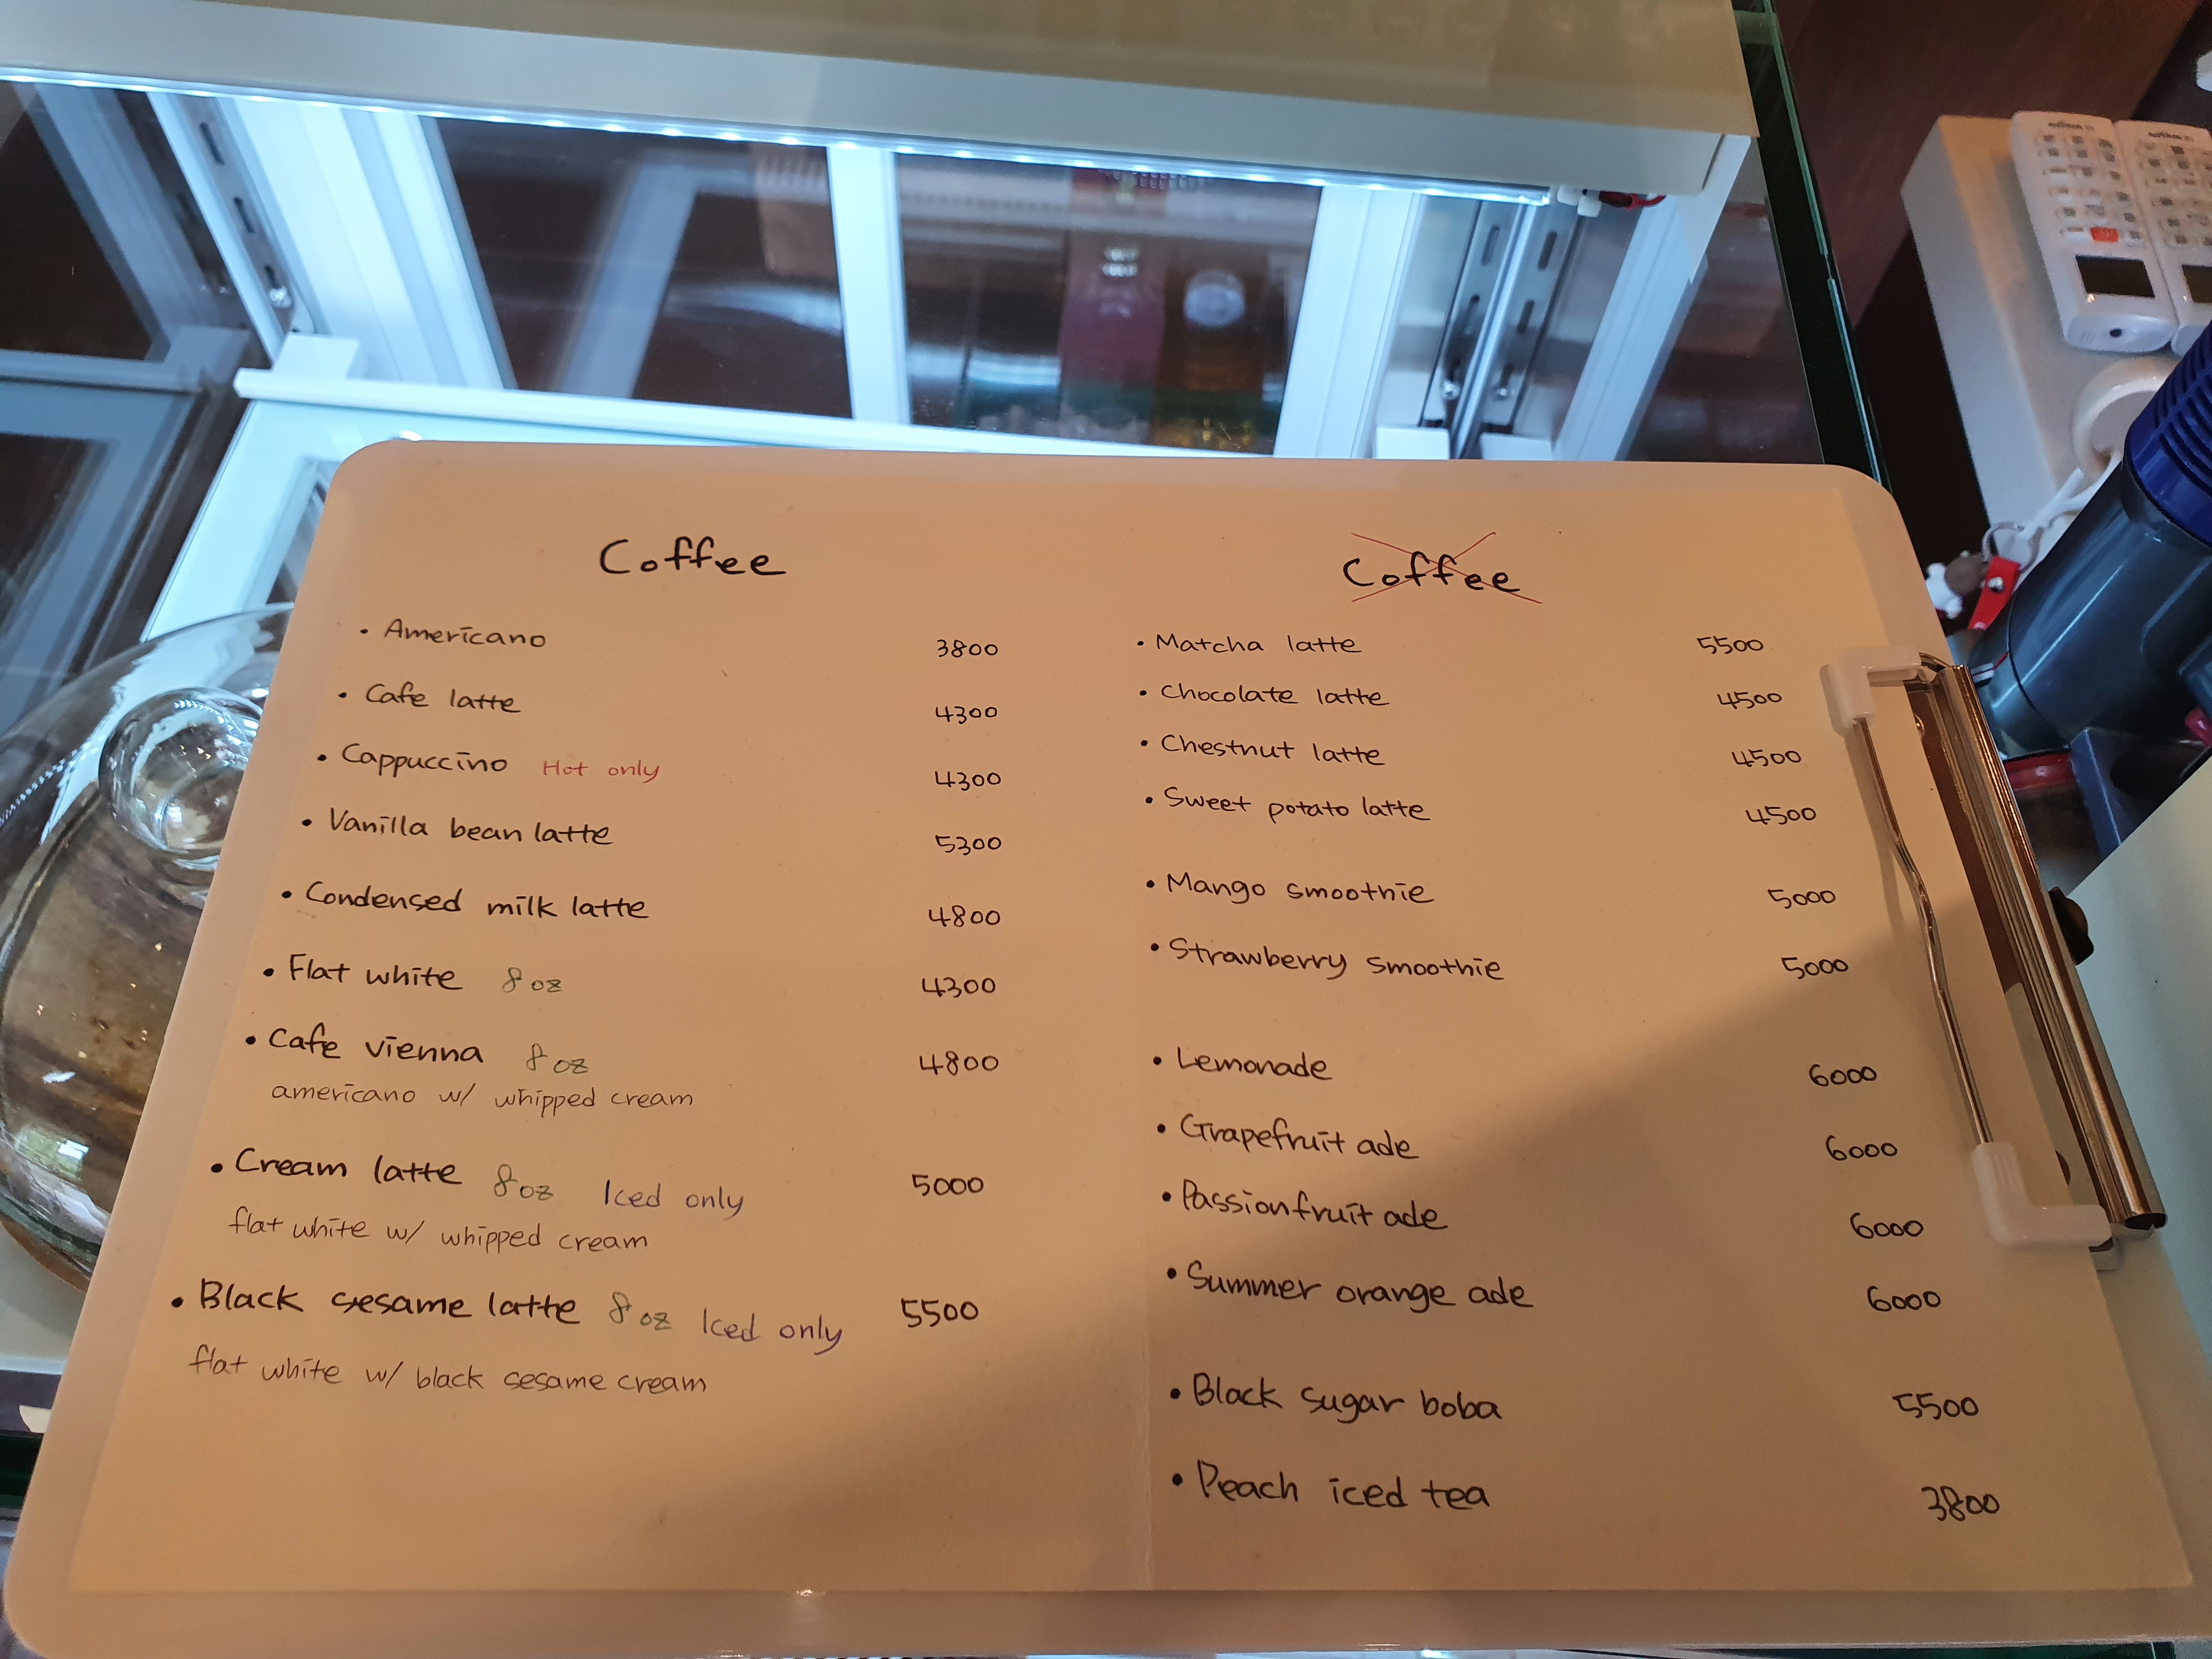 Coffee
• Americano 3800
• Cafe latte 4300
• Cappuccino Hot only 4300
• Vanilla bean latte 5300
• Condensed milk latte 4800
• Flat white 8 oz 4300
• Cafe vienna 8 oz 4800
americano w/ whipped cream
• Cream latte 8 oz Iced only 5000
flat white w/ whipped cream
• Black sesame latte 8 oz Iced only 5500
flat white w/ black sesame cream
Coffee
• Matcha latte 5500
• Chocolate latte 4500
• Chestnut latte 4500
• Sweet potato latte 4500
• Mango smoothie 5000
• Strawberry smoothie 5000
• Lemonade 6000
• Grapefruit ade 6000
• Passionfruit ade 6000
• Summer orange ade 6000
• Black sugar boba 5500
• Peach iced tea 3800